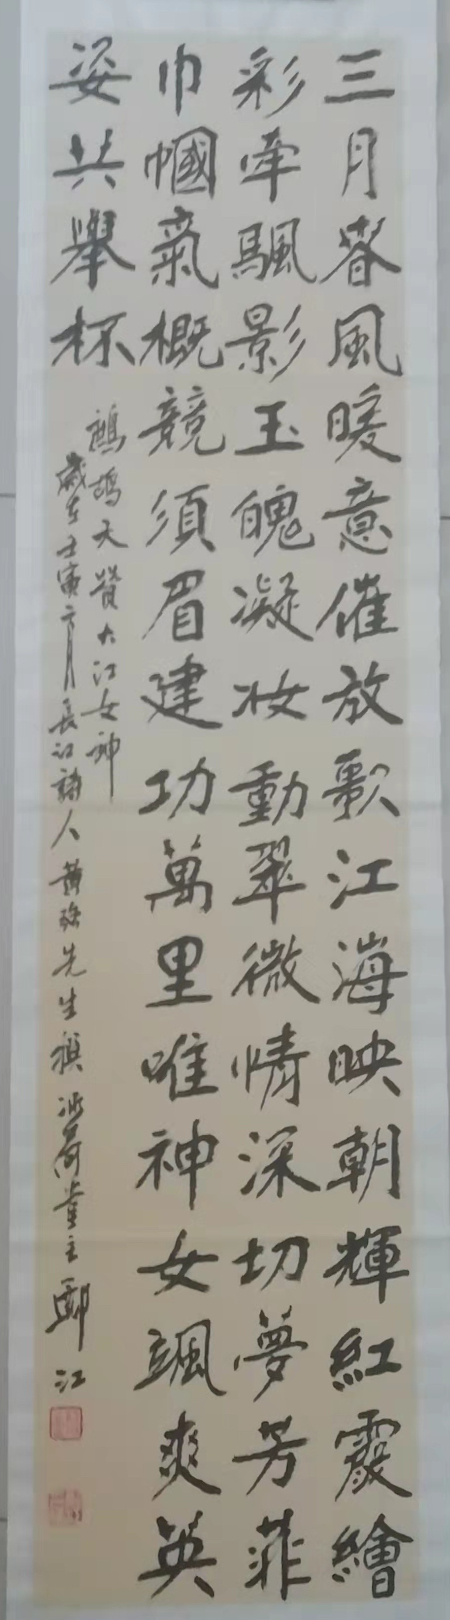 三月春風暖意催放歌江海映朝輝紅霞繪
彩牽颿影玉魄凝妝動翠微情深切夢芳菲
巾幗氣概競須眉建功萬里唯神女颯爽英
姿共舉杯
鷓鴣天贊大江女神
歲在壬寅六月長江詩人黃強先生撰 荷堂主鄢江